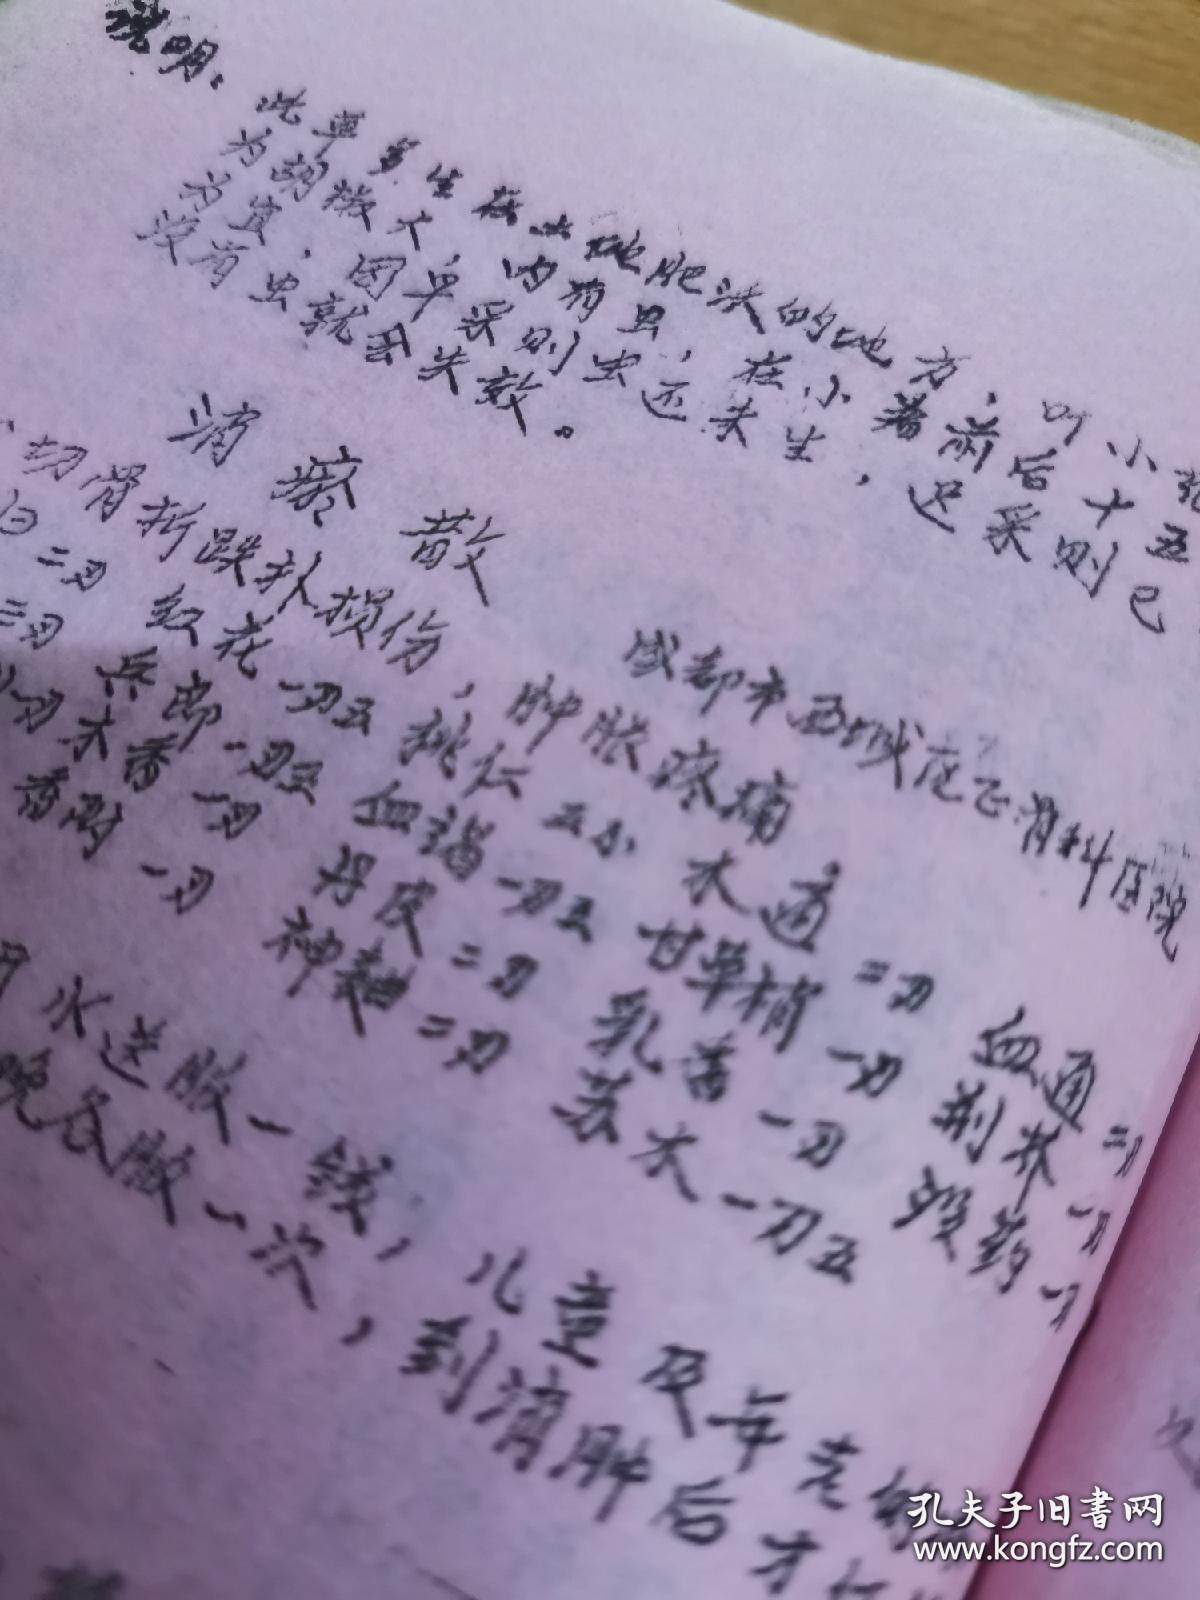 说明：此草多生在土地肥沃的地方，叶小
为胡椒大，内有虫，在小暑前后十五
为宜，因早采则虫还未生，迟采则已
没有虫就会失效。
消瘀散
成都市西城区正骨科医院
切骨折跌扑损伤，肿胀疼痛
二刃 红花一刃五 桃仁五小 木通二刃 血通二刃
三刃 兵郎一刃五 血竭一刃五 甘草梢一刃 荆芥一刃
一刃 木香一刃 丹皮二刃 乳香一刃 没药一刃
香附一刃 神曲二刃 苏木一刃五
开水送服一钱，儿童及年老的
晚各服一次，到消肿后才
孔夫子旧书网
www.kongfz.com